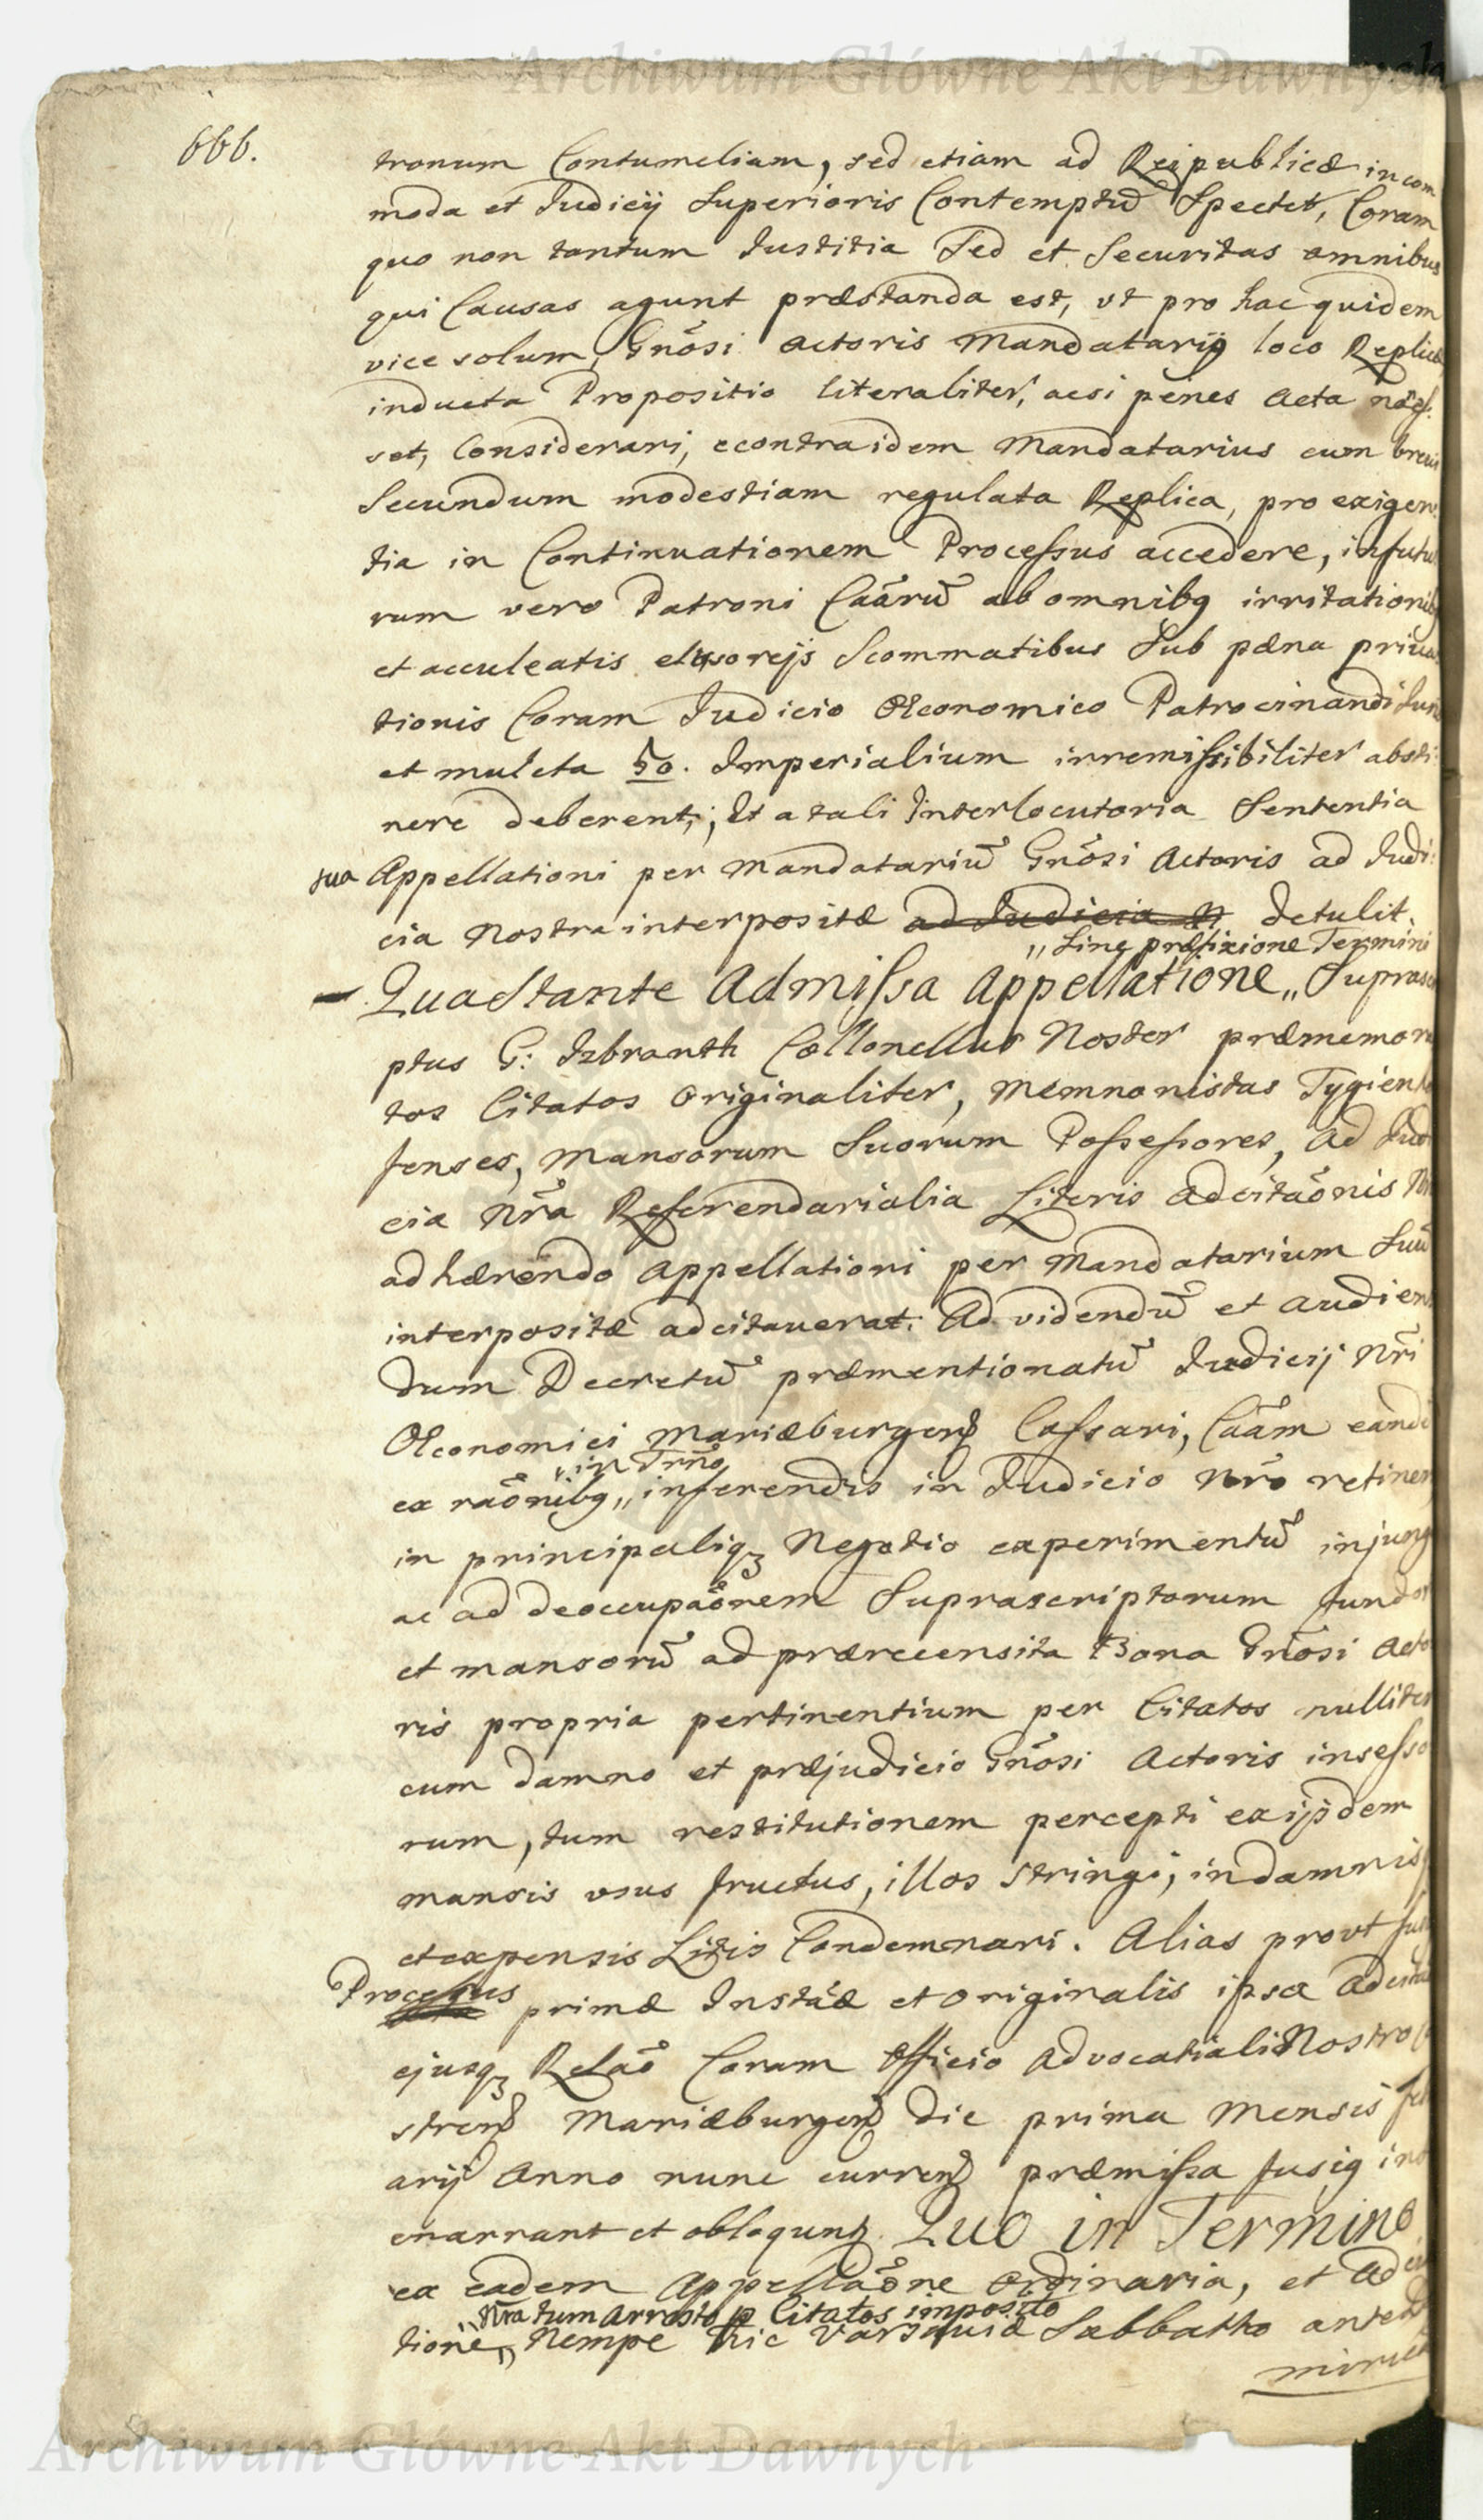 Archiwum Główne Akt Dawnych
666.
tronum Contumeliam, sed etiam ad Reipublicæ incom
moda et Judicij Superioris Contemptū Spectet, Coram
quo non tantum Justitia Sed et Securitas omnibus
qui Causas agunt præstanda est, vt pro hac quidem
vice solum, Gnōsi actoris Mandatarij loco Replicæ
inducta Propositio literaliter, acsi penes Acta
set, Considerari, econtra idem Mandatarius cum brevi
Secundum modestiam regulata Replica, pro exigen
tia in Continuationem Processus accedere, in futu
rum vero Patroni Caãrū ab omnibq irritationib
et acculeatis elusorijs Scommatibus Sub pæna priva
tionis Coram Judicio Œconomico Patrocinandi
et mulcta 50. Imperialium irremissibiliter absti
nere deberent; Et a tali Interlocutoria Sententia
sua Appellationi per Mandatariū Gnōsi Actoris ad Judi:
cia Nostra interpositæ ad Judicia N detulit.
„ Sine præfixione Termini
Quastante Admissa Appellatione „ Suprascri
ptus G: Izbranth Collonellus Noster præmemora
tos Citatos Originaliter, Memnonistas Tygienho
fenses, Mansorum Suorum Possessores, Ad Judi
cia Nr̃a Referendarialia Literis Adcitãonis
adhærendo Appellationi per Mandatarium Suū
interpositæ adcitauerat. Ad videndū et Audien
dum Decretū præmentionatū Judicij Nr̃i
Œconomici Mariæburgens Cassari, Caãm eandē
„ in Trño
ex raõnibq „ inferendis in Judicio Nr̃o retineri
in principaliq Negotio experimentū injungi
ac ad deoccupaõnem Suprascriptorum fundor
et mansorū ad prærecensita Bona Gnōsi Acto
ris propria pertinentium per Citatos nulliter
cum damno et præjudicio Gnōsi Actoris insesso
rum, tum restitutionem percepti ex ijsdem
mansis vsus fructus, illos Stringi, in damnis
et expensis Litis Condemnari. Alias prout
Processus primæ Instãæ et Originalis ipsa Adcita
ejusq Relaõ Coram Officio Advocatiali Nostro
strens Mariæburgens die prima Mensis
arij Anno nunc currens præmissa fusiq
enarrant et obloquunt. Quo in Termino
ex eadem Appellaõne Ordinaria, et Adcita
„ Nr̃a tum Arresto p Citatos imposito
tione „ Nempe hic Varsauiæ Sabbatho
Archiwum Główne Akt Dawnych